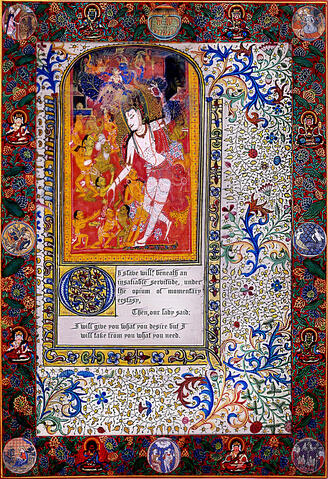 Oh slave will! beneath an
insatiable servitude, under
the opium of momentary
ecstasy,
Then, our lady said;
I will give you what you desire but I
will take from you what you need.